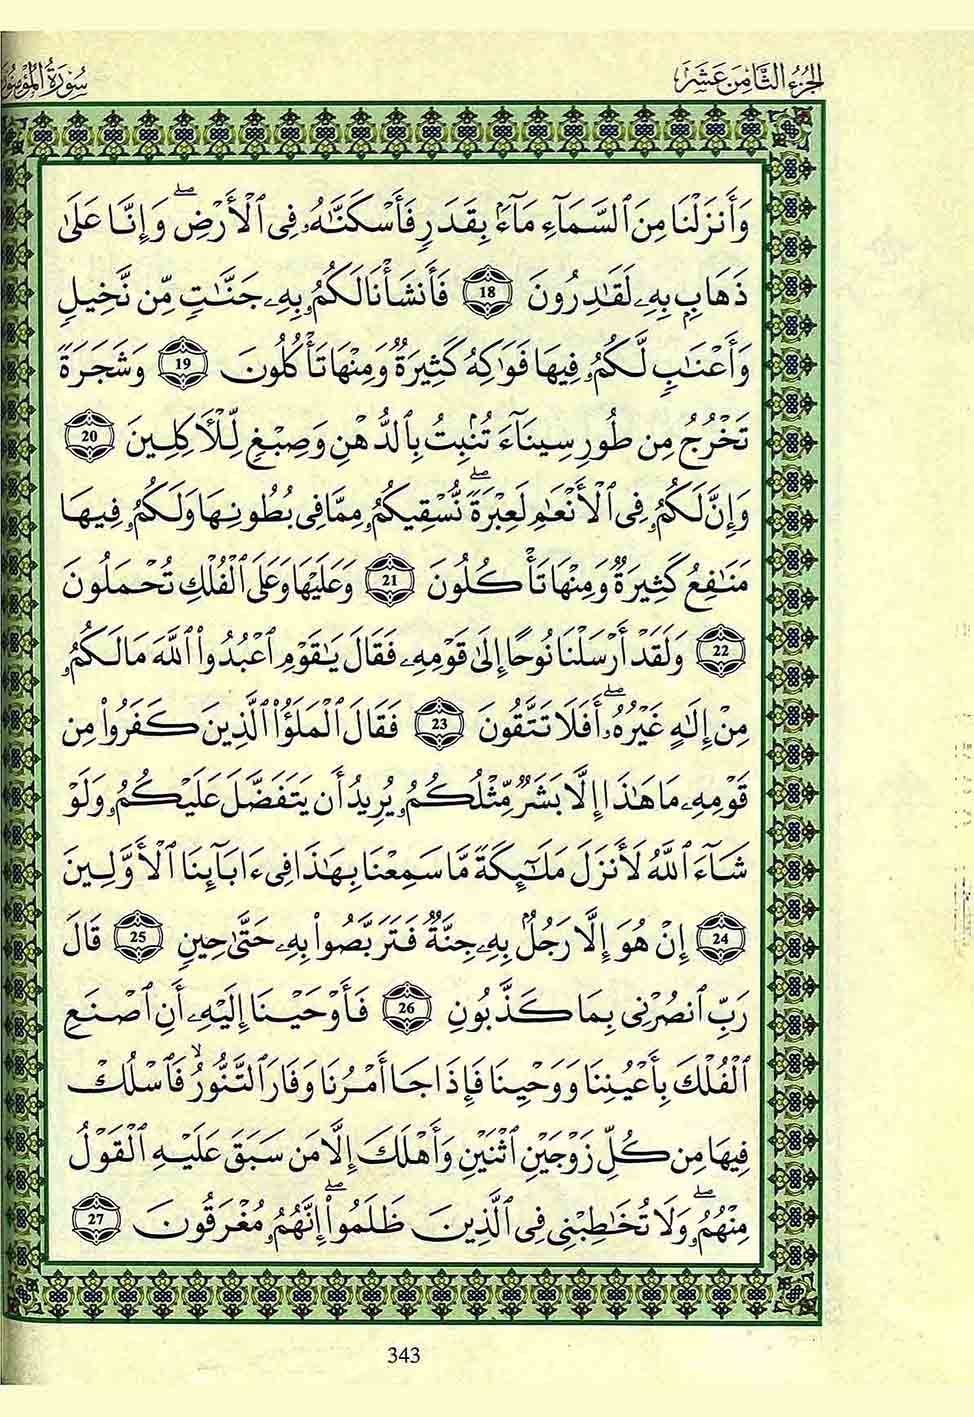 الجُزْءُ الثَّامِنَ عَشَرَ
سُورَةُ المُؤْمِنُو
وَأَنزَلْنَا مِنَ ٱلسَّمَآءِ مَآءَۢ بِقَدَرٍ فَأَسْكَنَّٰهُۥ فِى ٱلْأَرْضِ ۖ وَإِنَّا عَلَىٰ
ذَهَابِۭ بِهِۦ لَقَٰدِرُونَ 18 فَأَنشَأْنَا لَكُمُۥ بِهِۦ جَنَّٰتٍ مِّن نَّخِيلٍ
وَأَعْنَٰبٍ لَّكُمُۥ فِيهَا فَوَٰكِهُ كَثِيرَةٌ وَمِنْهَا تَأْكُلُونَ 19 وَشَجَرَةً
تَخْرُجُ مِن طُورِ سِينَآءَ تُنۢبِتُ بِٱلدُّهْنِ وَصِبْغٍ لِّلْأَكِلِينَ 20
وَإِنَّ لَكُمُۥ فِى ٱلْأَنْعَٰمِ لَعِبْرَةً ۖ نُّسْقِيكُمُۥ مِمَّا فِى بُطُونِهَا وَلَكُمُۥ فِيهَا
مَنَٰفِعُ كَثِيرَةٌ وَمِنْهَا تَأْكُلُونَ 21 وَعَلَيْهَا وَعَلَى ٱلْفُلْكِ تُحْمَلُونَ
22 وَلَقَدْ أَرْسَلْنَا نُوحًا إِلَىٰ قَوْمِهِۦ فَقَالَ يَٰقَوْمِ ٱعْبُدُوا۟ ٱللَّهَ مَا لَكُمُۥ
مِنْ إِلَٰهٍ غَيْرُهُۥ ۖ أَفَلَا تَتَّقُونَ 23 فَقَالَ ٱلْمَلَؤُا۟ ٱلَّذِينَ كَفَرُوا۟ مِن
قَوْمِهِۦ مَا هَٰذَا إِلَّا بَشَرٌ مِّثْلُكُمُۥ يُرِيدُ أَن يَتَفَضَّلَ عَلَيْكُمُۥ وَلَوْ
شَآءَ ٱللَّهُ لَأَنزَلَ مَلَٰٓئِكَةً مَّا سَمِعْنَا بِهَٰذَا فِى ءَابَآئِنَا ٱلْأَوَّلِينَ
24 إِنْ هُوَ إِلَّا رَجُلُۢ بِهِۦ جِنَّةٌ فَتَرَبَّصُوا۟ بِهِۦ حَتَّىٰ حِينٍ 25 قَالَ
رَبِّ ٱنصُرْنِى بِمَا كَذَّبُونِ 26 فَأَوْحَيْنَا إِلَيْهِۦ أَنِ ٱصْنَعِ
ٱلْفُلْكَ بِأَعْيُنِنَا وَوَحْيِنَا فَإِذَا جَا أَمْرُنَا وَفَارَ ٱلتَّنُّورُ ۙ فَٱسْلُكْ
فِيهَا مِن كُلِّ زَوْجَيْنِ ٱثْنَيْنِ وَأَهْلَكَ إِلَّا مَن سَبَقَ عَلَيْهِ ٱلْقَوْلُ
مِنْهُمُۥ ۖ وَلَا تُخَٰطِبْنِى فِى ٱلَّذِينَ ظَلَمُوا۟ ۖ إِنَّهُمُۥ مُغْرَقُونَ 27
343